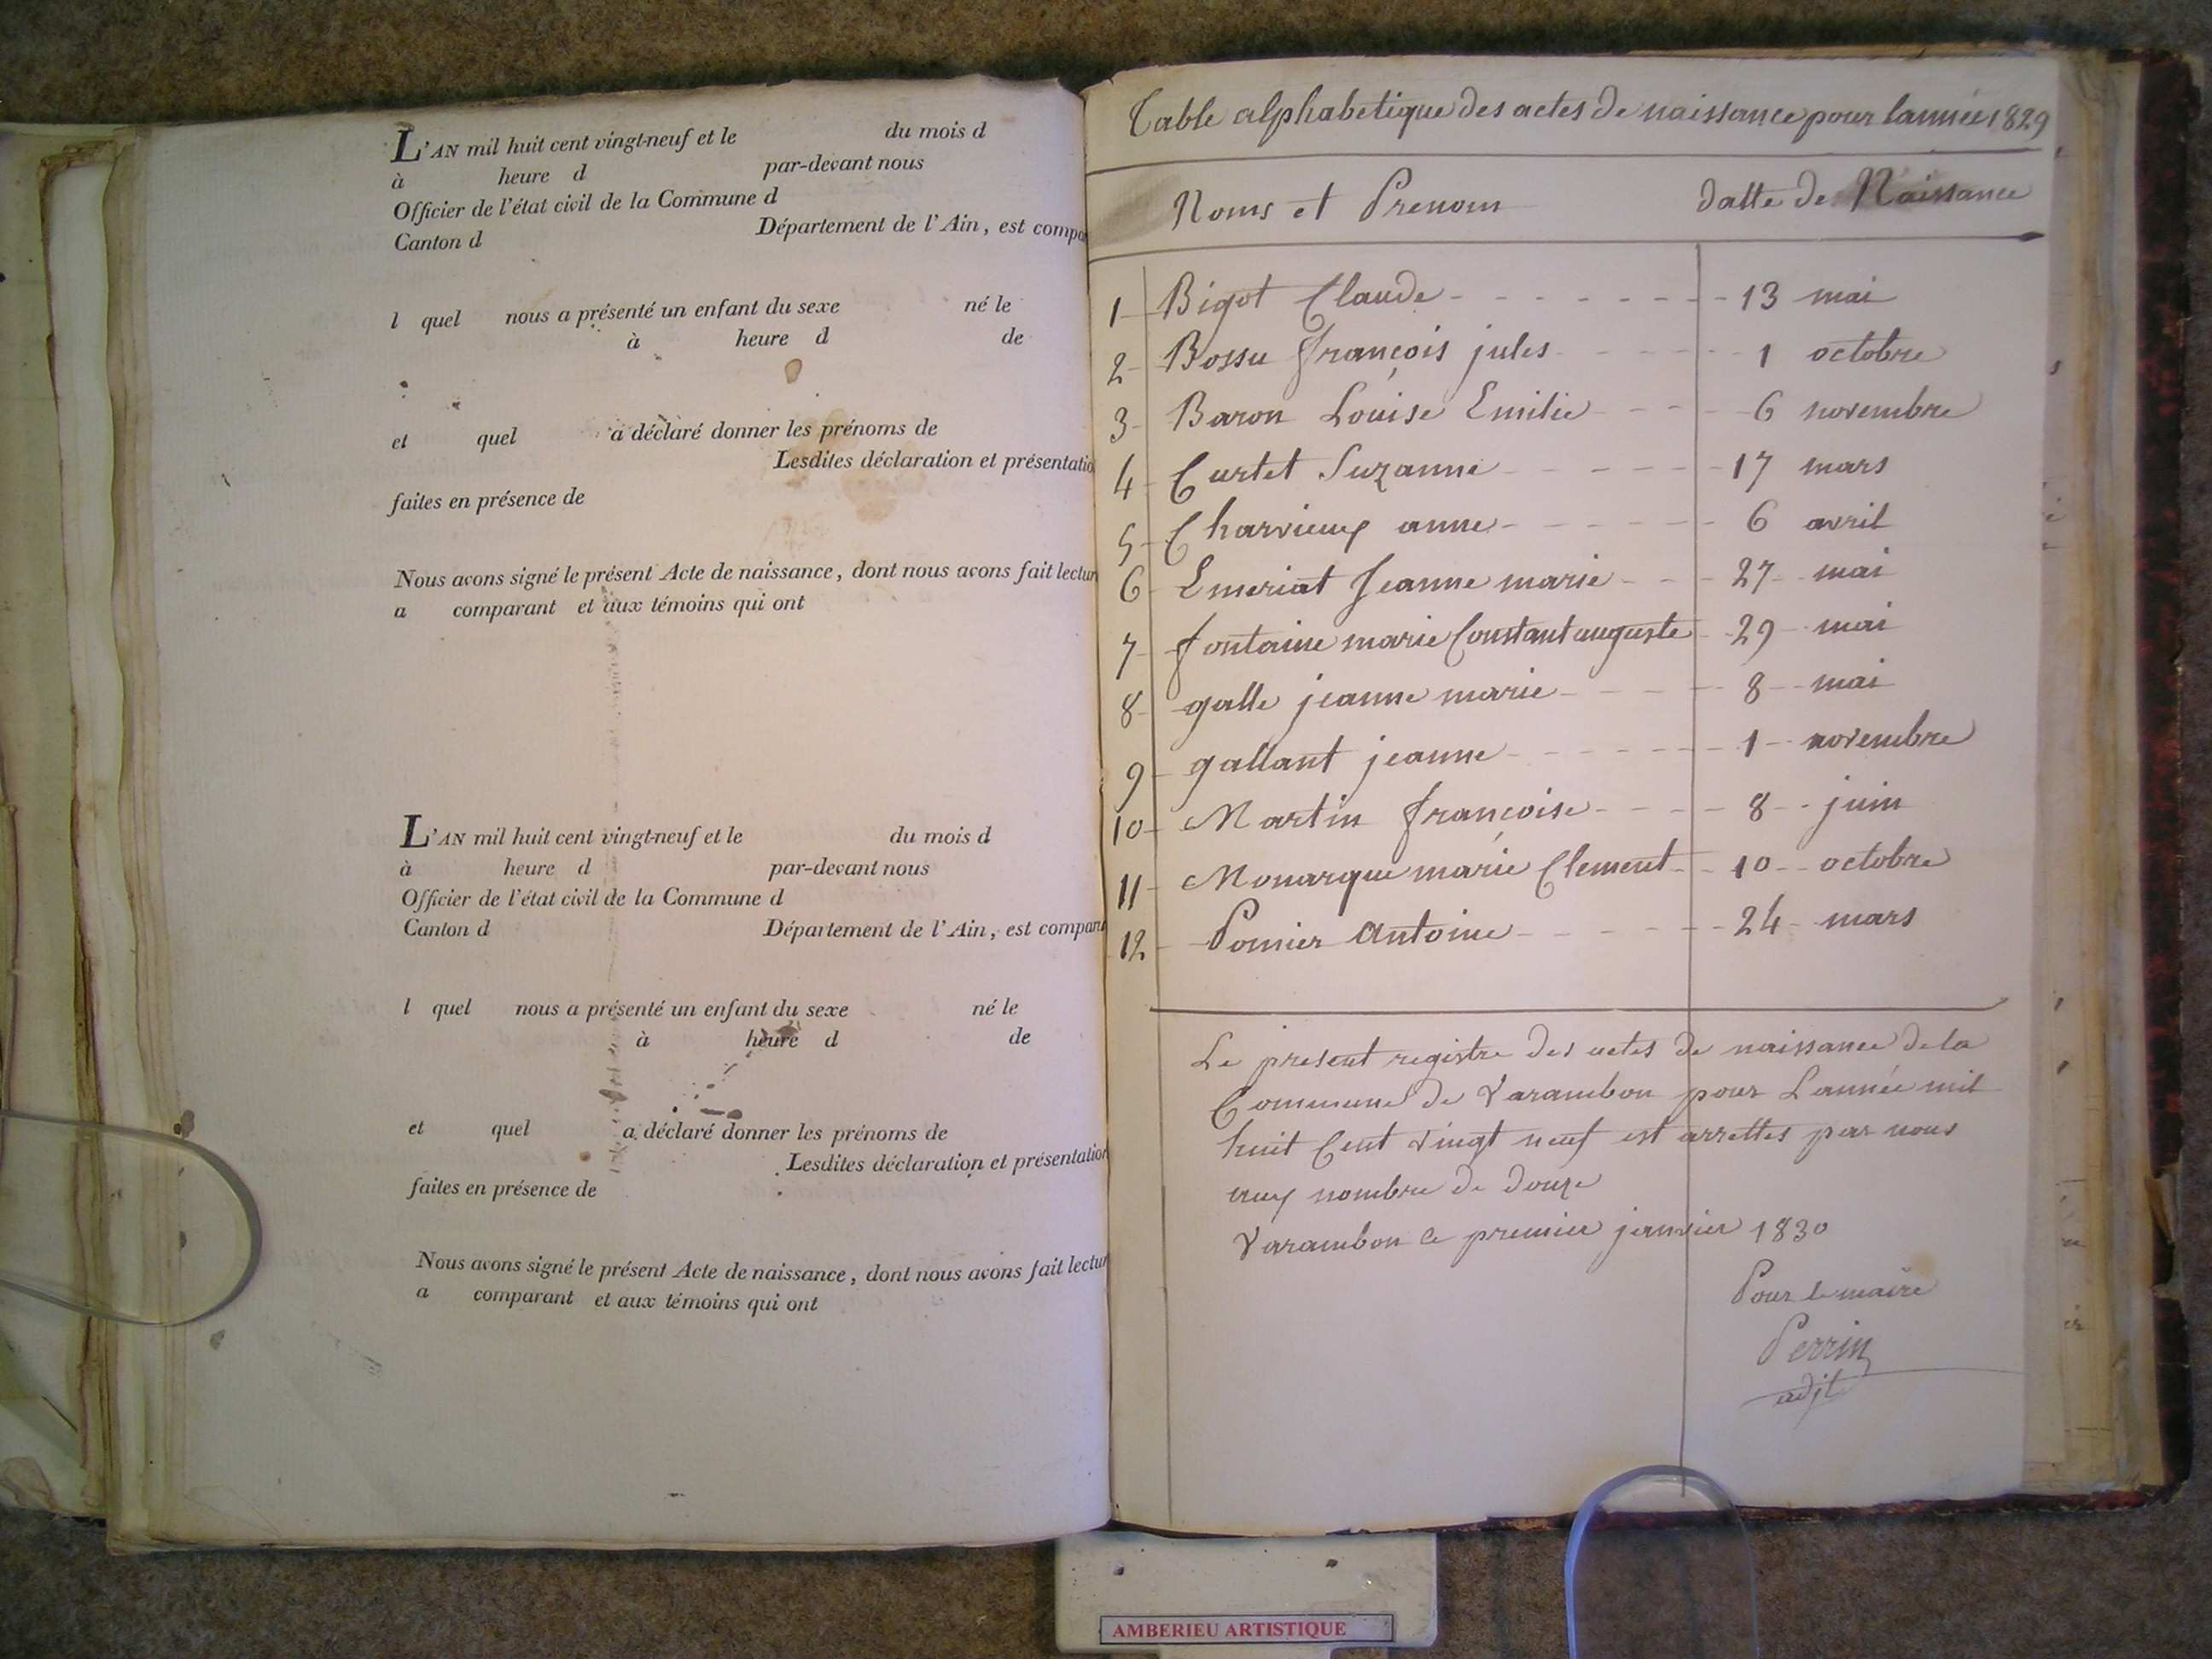 L'AN mil huit cent vingt-neuf et le du mois d
à heure d par-devant nous
Officier de l'état civil de la Commune d
Canton d Département de l'Ain, est compa
l quel nous a présenté un enfant du sexe né le
à heure d de
et quel a déclaré donner les prénoms de
Lesdites déclaration et présentatio
faites en présence de
Nous avons signé le présent Acte de naissance, dont nous avons fait lectur
a comparant et aux témoins qui ont
L'AN mil huit cent vingt-neuf et le du mois d
à heure d par-devant nous
Officier de l'état civil de la Commune d
Canton d Département de l'Ain, est compar
l quel nous a présenté un enfant du sexe né le
à heure d de
et quel a déclaré donner les prénoms de
Lesdites déclaration et présentation
faites en présence de
Nous avons signé le présent Acte de naissance, dont nous avons fait lectur
a comparant et aux témoins qui ont
Table alphabetique des actes de naissance pour lannée 1829
Noms et Prenom datte de Naissance
1 Bigot Claude 13 mai
2 Bossu françois jules 1 octobre
3 Baron Louise Emilie 6 novembre
4 Curtet Suzanne 17 mars
5 Charvieux anne 6 avril
6 Emeriat Jeanne marie 27 mai
7 fontaine marie Constant auguste 29 mai
8 galle jeanne marie 8 mai
9 gallant jeanne 1 novembre
10 Martin françoise 8 juin
11 Monarque marie Clement 10 octobre
12 Pomier antoine 24 mars
Le present registre des actes de naissance de la
Commune de Varambon pour Lannée mil
huit Cent vingt neuf est arrettes par nous
aux nombre de douze
Varambon le premier janvier 1830
Pour le maire
Perrin
adjt
AMBERIEU ARTISTIQUE